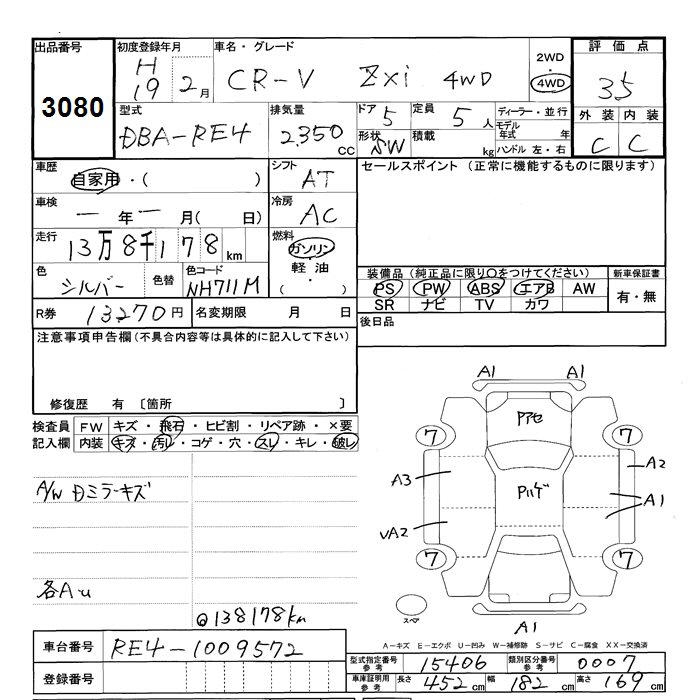 出品番号 初度登録年月 車名・グレード 評価点
3080 H19 2月 CR-V Zxi 4WD 2WD・4WD 35
型式 排気量 ドア 5 定員 5人 ディーラー・並行 外装 内装
DBA-RE4 2,350cc 形状 SW 積載 kg モデル年式 年 C C
ハンドル 左・右
車歴 自家用・( ) シフト AT セールスポイント (正常に機能するものに限ります)
車検 ー年ー月( 日) 冷房 AC
走行 13万8千178km 燃料 ガソリン・軽油・( )
色 シルバー 色替 色コード NH711M
装備品(純正品に限り○をつけてください) 新車保証書
PS PW ABS エアB AW 有・無
SR ナビ TV カワ
R券 13270円 名変期限 月 日 後日品
注意事項申告欄(不具合内容等は具体的に記入して下さい)
修復歴 有 〔箇所 〕
検査員記入欄 FW キズ・飛石・ヒビ割・リペア跡・×要
内装 キズ・汚レ・コゲ・穴・スレ・キレ・破レ
A/W Dミラーキズ
各A・u
@138178km
A1 A1
Pアセ
7 7
A3 Pハゲ A2
A1
UA2
7 7
スペア
A1
A-キズ E-エクボ U-凹み W-補修跡 S-サビ C-腐食 XX-交換済
車台番号 RE4-1009572
型式指定番号参考 15406 類別区分番号参考 0007
登録番号
車庫証明用参考 長さ 452cm 幅 182cm 高さ 169cm